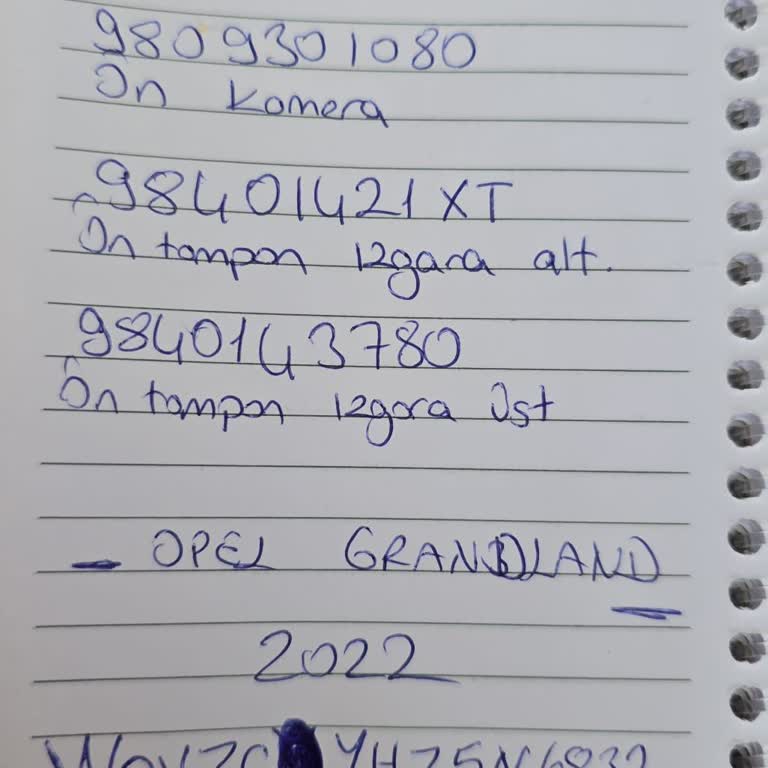 9809301080
Ön Kamera
98401421XT
Ön tampon ızgara alt.
9840143780
Ön tampon ızgara Üst
- OPEL GRANDLAND
2022